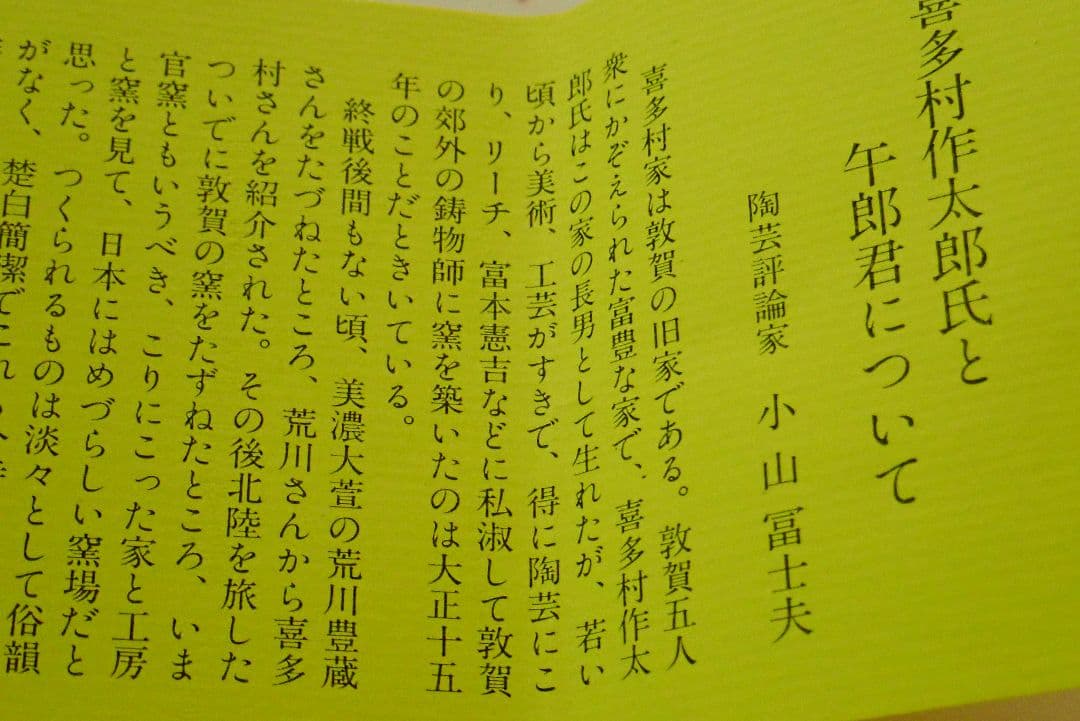 喜多村作太郎氏と
午郎君について
陶芸評論家 小山冨士夫
喜多村家は敦賀の旧家である。敦賀五人
衆にかぞえられた富豊な家で、喜多村作太
郎氏はこの家の長男として生れたが、若い
頃から美術、工芸がすきで、得に陶芸にこ
り、リーチ、富本憲吉などに私淑して敦賀
の郊外の鋳物師に窯を築いたのは大正十五
年のことだときいている。
終戦後間もない頃、美濃大萱の荒川豊蔵
さんをたづねたところ、荒川さんから喜多
村さんを紹介された。その後北陸を旅した
ついでに敦賀の窯をたずねたところ、いま
官窯ともいうべき、こりにこった家と工房
と窯を見て、日本にはめづらしい窯場だと
思った。つくられるものは淡々として俗韻
がなく、楚白簡潔でこれ